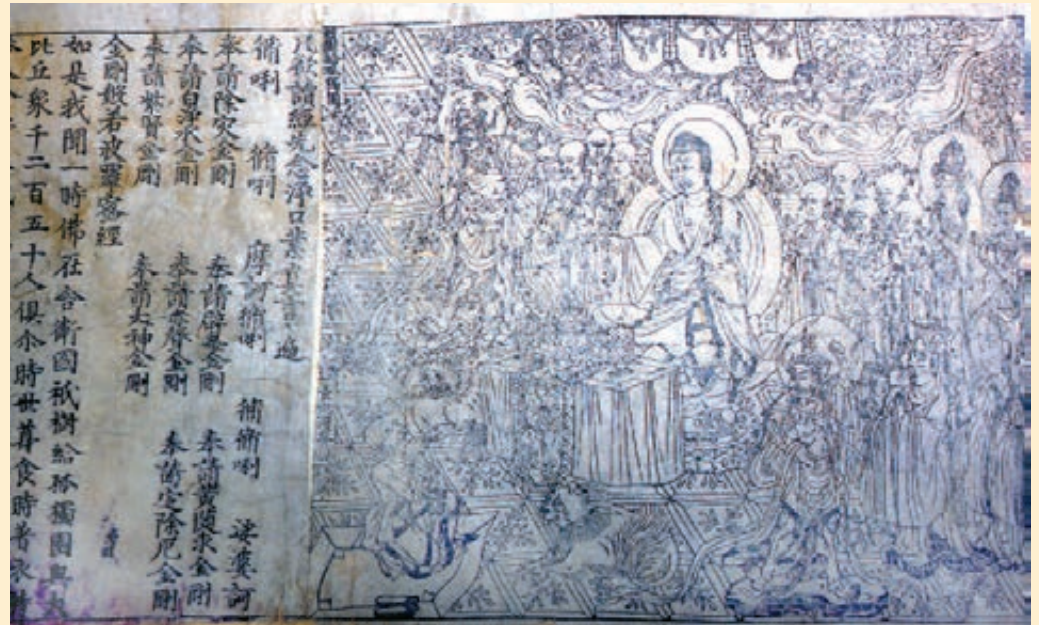 凡欲讀經先念淨口業真言一遍
脩唎 脩唎 摩訶脩唎 脩脩唎 娑婆訶
奉請除災金剛 奉請辟毒金剛 奉請黃隨求金剛
奉請白淨水金剛 奉請赤聲金剛 奉請定除厄金剛
奉請紫賢金剛 奉請大神金剛
金剛般若波羅蜜經
如是我聞一時佛在舍衛國祇樹給孤獨園與大
比丘衆千二百五十人俱尒時世尊食時著衣持